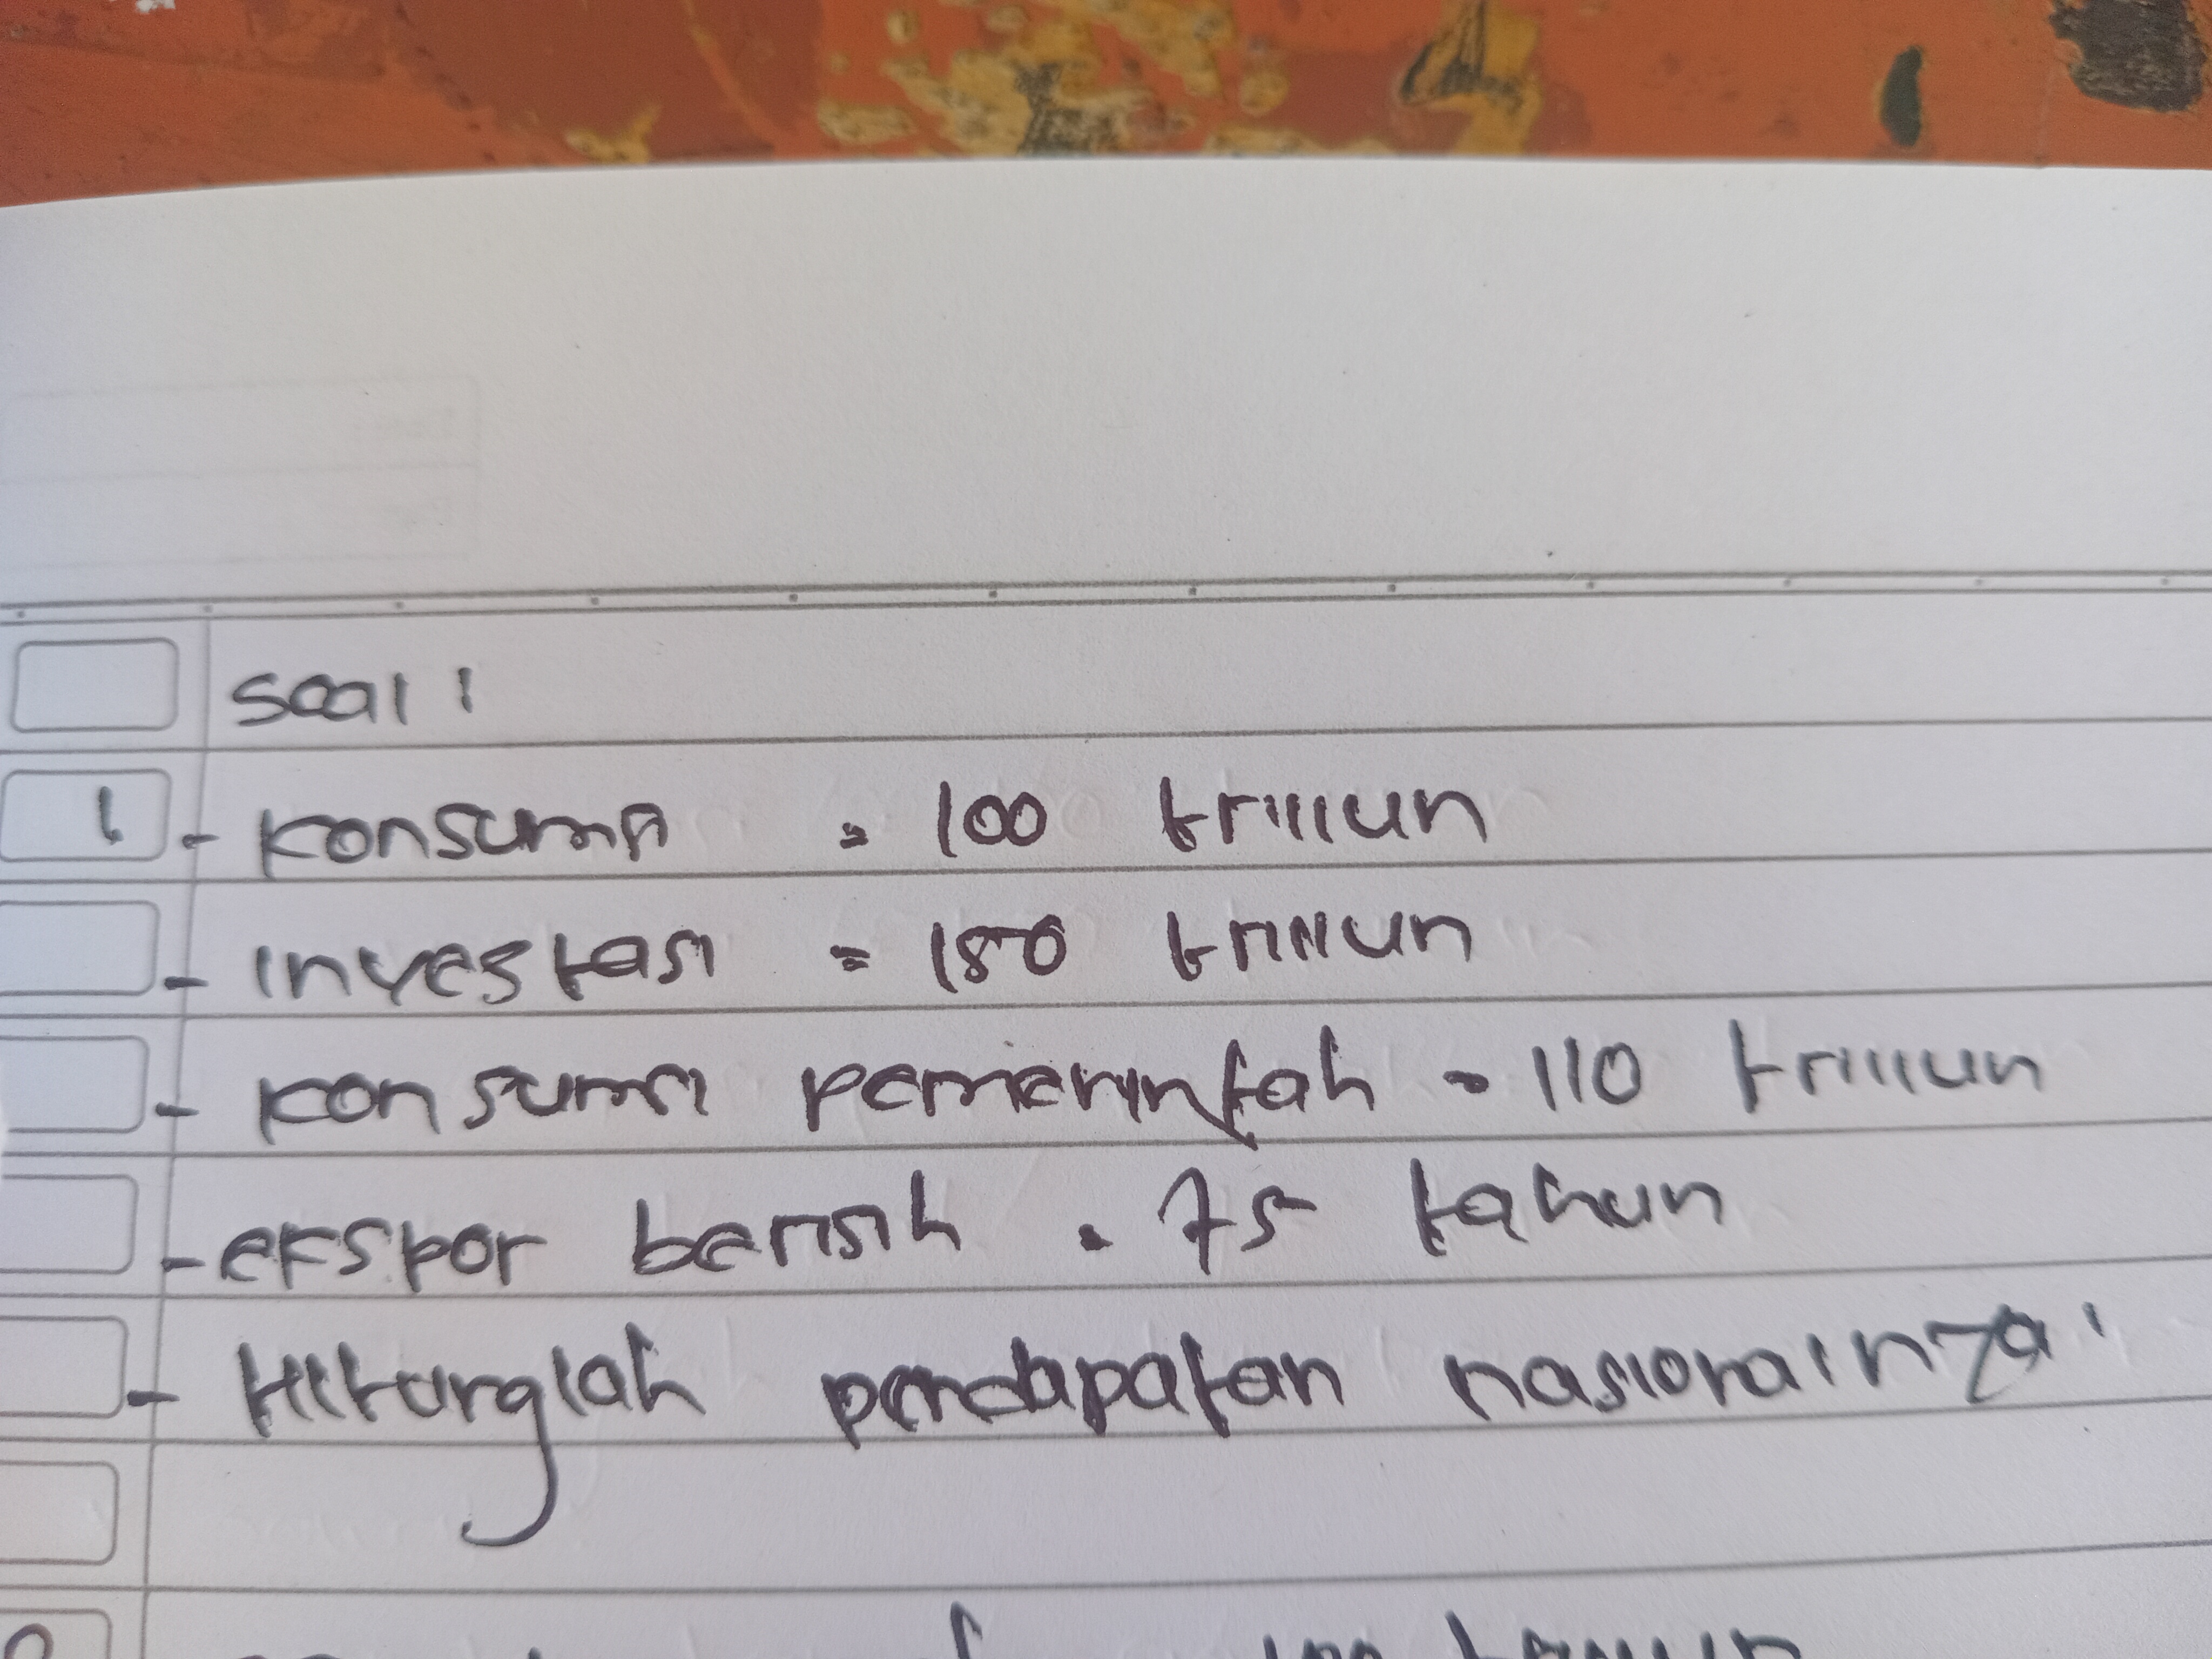 Soal 1
1. - Konsumsi = 100 triliun
- Investasi = 150 triliun
- Konsumsi pemerintah = 110 triliun
- ekspor bersih = 75 tahun
- Hitunglah pendapatan nasionalnya!